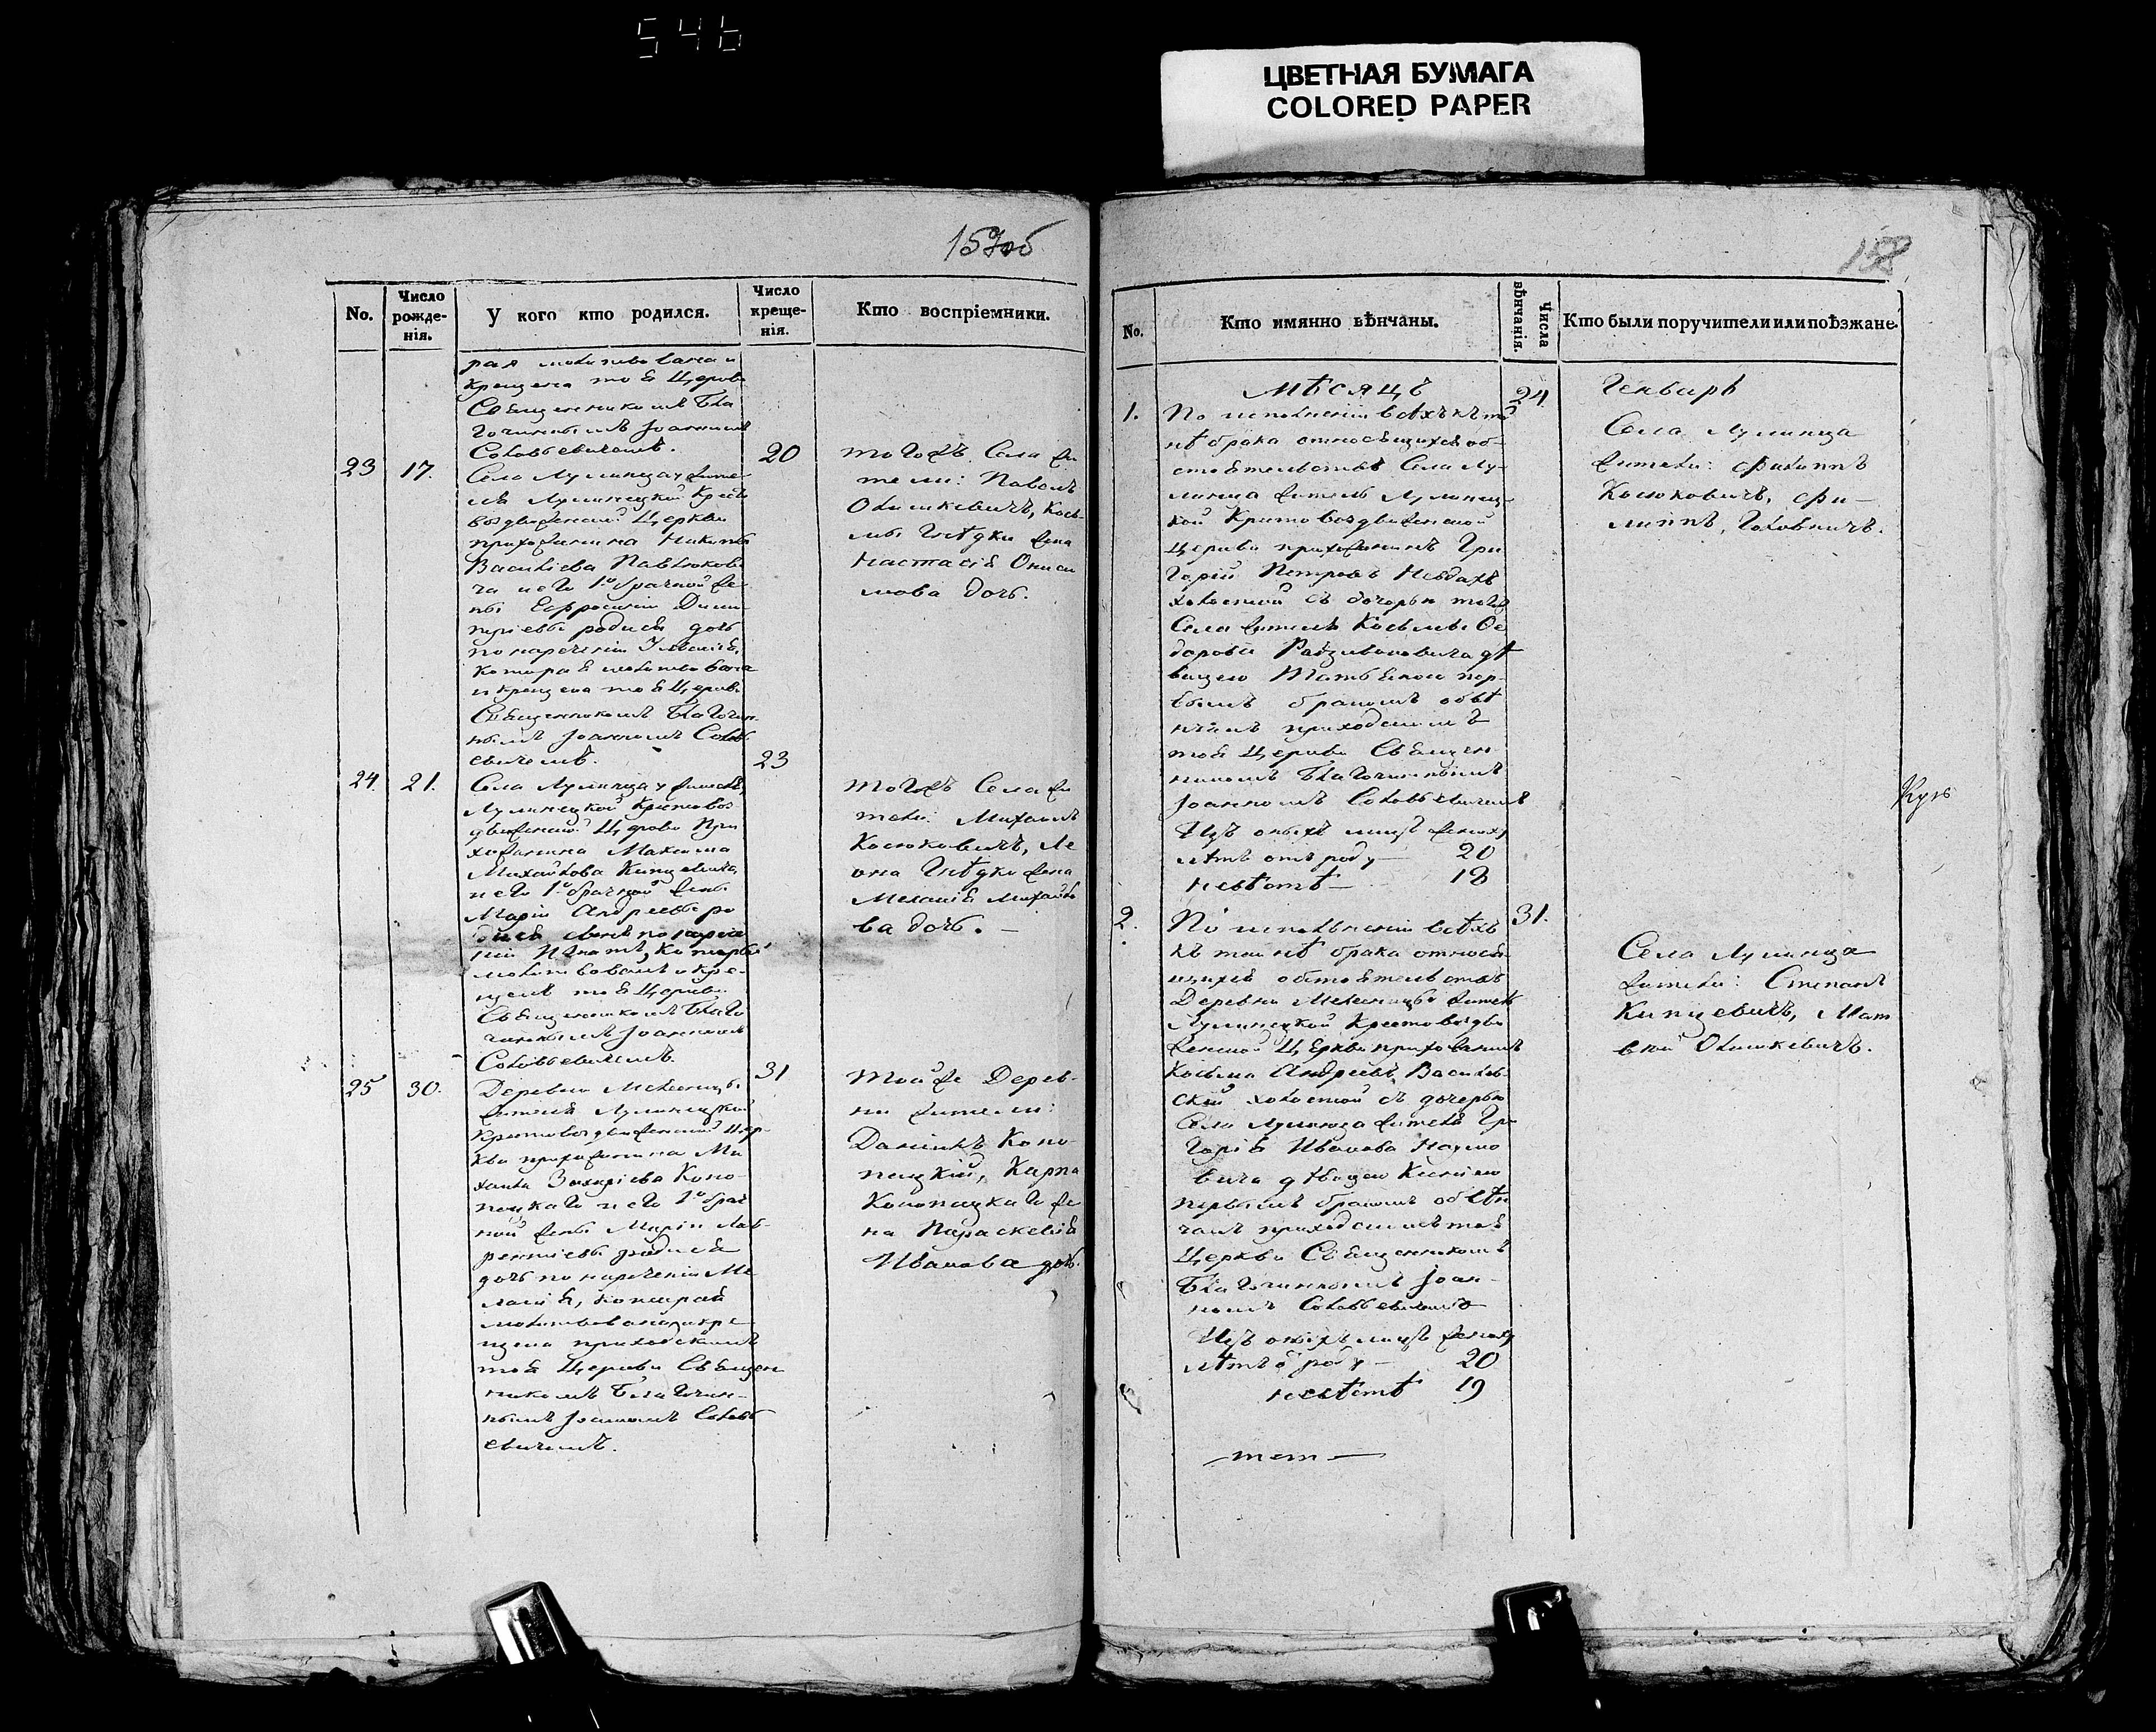 546
ЦВЕТНАЯ БУМАГА
COLORED PAPER
157об
No.
Число рожде-нія.
У кого кто родился.
Число креще-нія.
Кто воспріемники.
рая молитвована и
крещена тоя Церкви
Священникомъ Бла
гочиннымъ Іоанномъ
Соловьевичемъ.
23
17.
20
Села Лулинца у жите
ля Лулинецкой Кресто
воздвиженской Церкви
прихожанина Никиты
Василіева Павлюкови
ча и его 1о брачной же
ны Евфросиніи Дими
тріевы родися дочь
по наречении
которая молитвована
и крещена тоя Церкви
Священникомъ Благочин
нымъ Іоанномъ Соловь
евичемъ.
тогожъ Села жи
тели: Павелъ
Олишкевичъ, Кось
мы Гнѣдки жена
Настасія Ониси
мова дочь.
24
21.
23
Села Лулинца у жителя
Лулинецкой Крестовоз
движенской Церкви при
хожанина Максима
Михайлова Кунцевича
и его 1о брачной жены
Маріи Андреевы ро
дися сынъ по нарече
нии Игнатъ, который
молитвованъ и кре-
щенъ тоя Церкви
Священникомъ Благо
чиннымъ Іоанномъ
Соловьевичемъ.
тогожъ Села жи
тели: Михаилъ
Косюковичъ, Ле
она Гнѣдки жена
Меланія Михайло
ва дочь. —
25
30.
31
Деревни Мелесницы
жителя Лулинецкой
Крестовоздвиженской Цер
кви прихожанина Ми
хаила Захаріева Коно
пацкаго и его 1о брач
ной жены Маріи Лав-
рентіевы родися
дочь по нареченіи Ме
ланія, которая
молитвована и кре
щена приходскимъ
тоя Церкви Священ
никомъ Благочин-
нымъ Іоанномъ Соловь
евичемъ.
тойже Дерев-
ни жители:
Даніилъ Коно-
пацкій, Карпа
Конопацкаго же
на Параскевія
Иванова дочь.
158
No.
Кто имянно вѣнчаны.
Числа вѣнчанія.
Кто были поручители или поѣзжане.
Мѣсяцъ
Генварь
1.
24
По исполненіи всѣхъ къ тай
нѣ брака относящихся об-
стоятельствъ Села Лу-
линца житель Лулинец-
кой Крестовоздвиженской
Церкви прихожанинъ Гри
горій Петровъ Невдахъ
холостой съ дочерью тогожъ
Села жителя Косьмы Ѳе
дорова Радзивоновича дѣ
вицею Татьяною пер-
вымъ бракомъ обвѣ
нчанъ приходскимъ
тоя Церкви Священ
никомъ Благочиннымъ
Іоанномъ Соловьевичемъ
Изъ оныхъ лицъ жениху
лѣтъ отъ роду — 20
невѣстѣ — 18
Села Лулинца
жители: Филиппъ
Косюковичъ, Фи-
липпъ, Головничъ.
Кузь
2.
31.
По исполненіи всѣхъ
къ тайнѣ брака относя
щихся обстоятельствъ
Деревни Мелесницы житель
Лулинецкой Крестовоздви
женской Церкви прихожанинъ
Косьма Андреевъ Василев
скій холостой съ дочерью
Села Лулинца жителя Гри
горія Иванова Наумо
вича дѣвицею
первымъ бракомъ обвѣн
чанъ приходскимъ тоя
Церкви Священникомъ
Благочиннымъ Іоан-
номъ Соловьевичемъ
Изъ оныхъ лицъ жениху
лѣтъ роду — 20
невѣстѣ 19
Села Лулинца
жители: Степанъ
Кунцевичъ, Мат
вѣй Олишкевичъ.